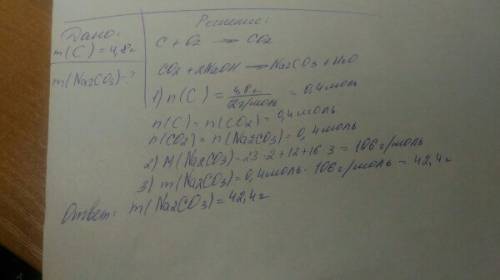 Дано:
m(C)=4,8г
m(Na2CO3)-?
Решение:
C + O2 → CO2
CO2 + 2NaOH → Na2CO3 + H2O
1) n(C) = 4,8г / 12г/моль = 0,4моль
n(C) = n(CO2) = 0,4моль
n(CO2) = n(Na2CO3) = 0,4моль
2) M(Na2CO3) = 23·2+12+16·3 = 106г/моль
3) m(Na2CO3) = 0,4моль · 106г/моль = 42,4г
Ответ: m(Na2CO3) = 42,4г